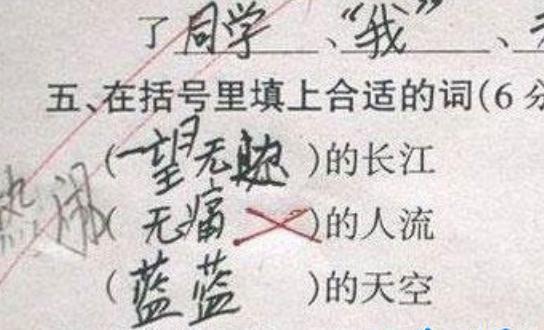 了同学、“我”、
五、在括号里填上合适的词(6分
(一望无际)的长江
热闹
(无痛)的人流
(蓝蓝)的天空